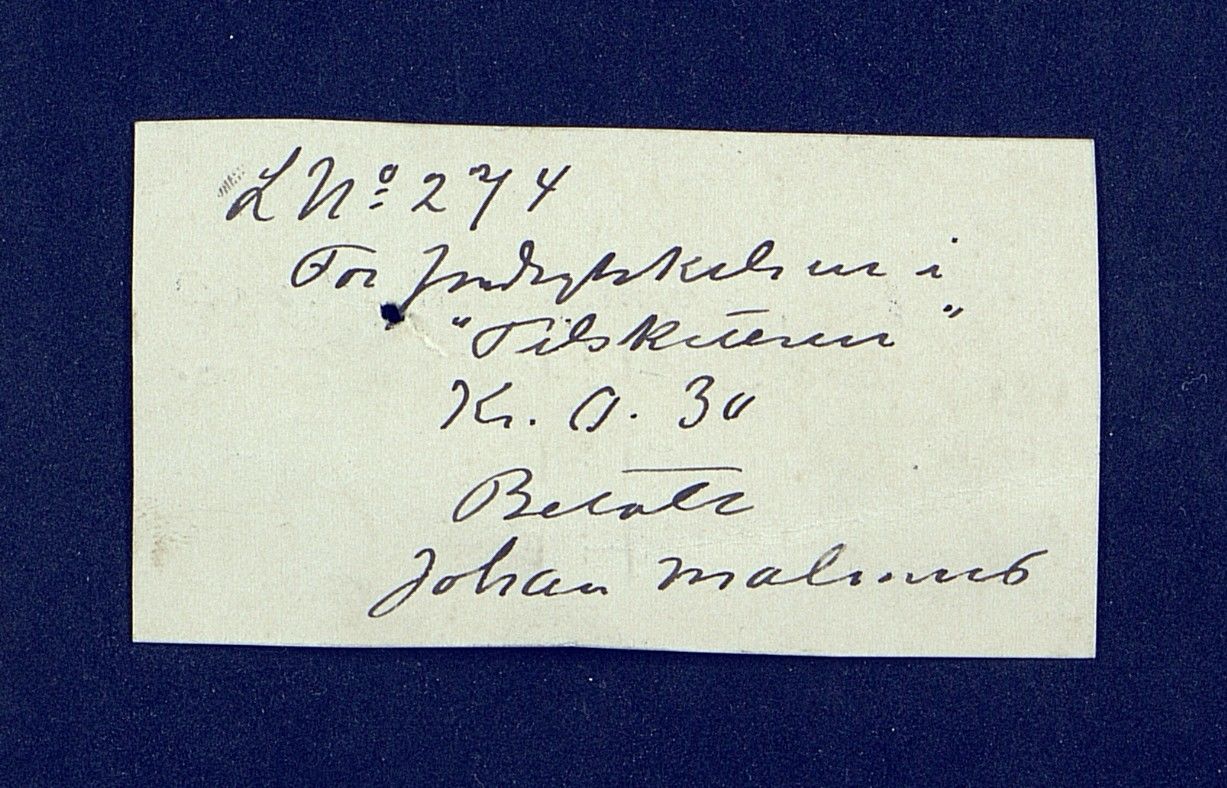 L No 274
For Indrykkelsen i
"Tilskueren"
Kr. 0. 30
Betalt
Johan Malmus